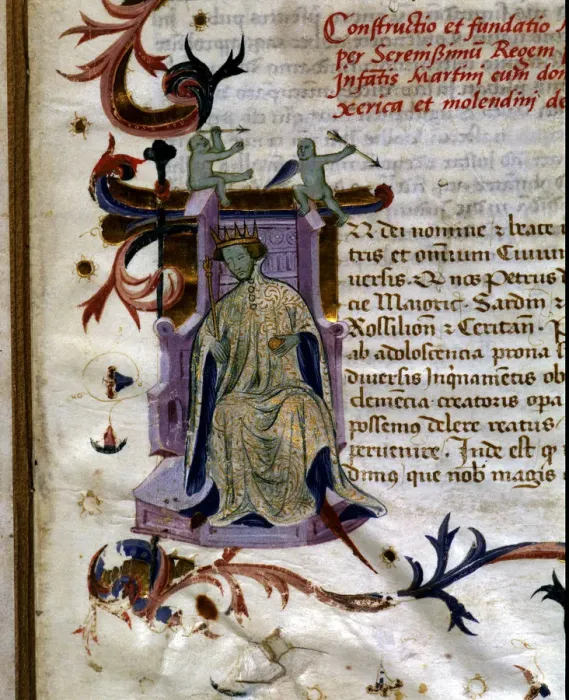 Constructio et fundatio
per Serenißimũ Regem
Infãtis Martini cum don
xerica et molendini de
N dei nomine ⁊ beate
tris et om̃ium Ciuium
uersis. Q nos Petrus
cie Maioric̃. Sardiñ ⁊
Rossilioñ ⁊ Ceritañ. P
ab adoloscencia prona
diuersis Inq̃namẽtis ob
clemẽcia creatoris opa
possemo delere reatus
peruenire. Inde est q
dimꝰ que nob̃ magis